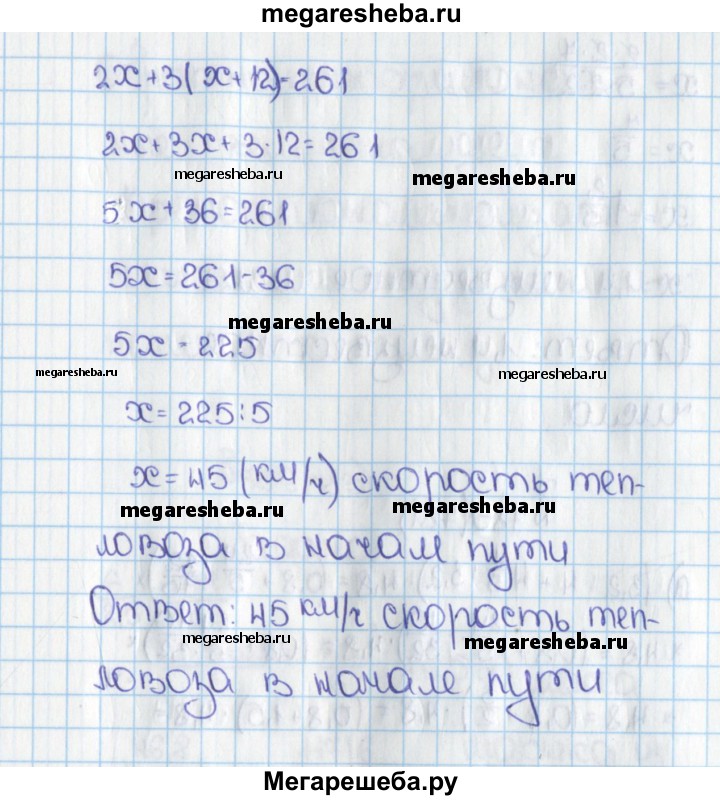 megaresheba.ru
2x+3(x+12)=261
2x+3x+3·12=261
megaresheba.ru
megaresheba.ru
5x+36=261
5x=261-36
megaresheba.ru
5x=225
megaresheba.ru
megaresheba.ru
x=225:5
x=45(км/ч) скорость теп-
megaresheba.ru
megaresheba.ru
ловоза в начале пути
Ответ: 45 км/ч скорость теп-
megaresheba.ru
megaresheba.ru
ловоза в начале пути
Мегарешеба.ру